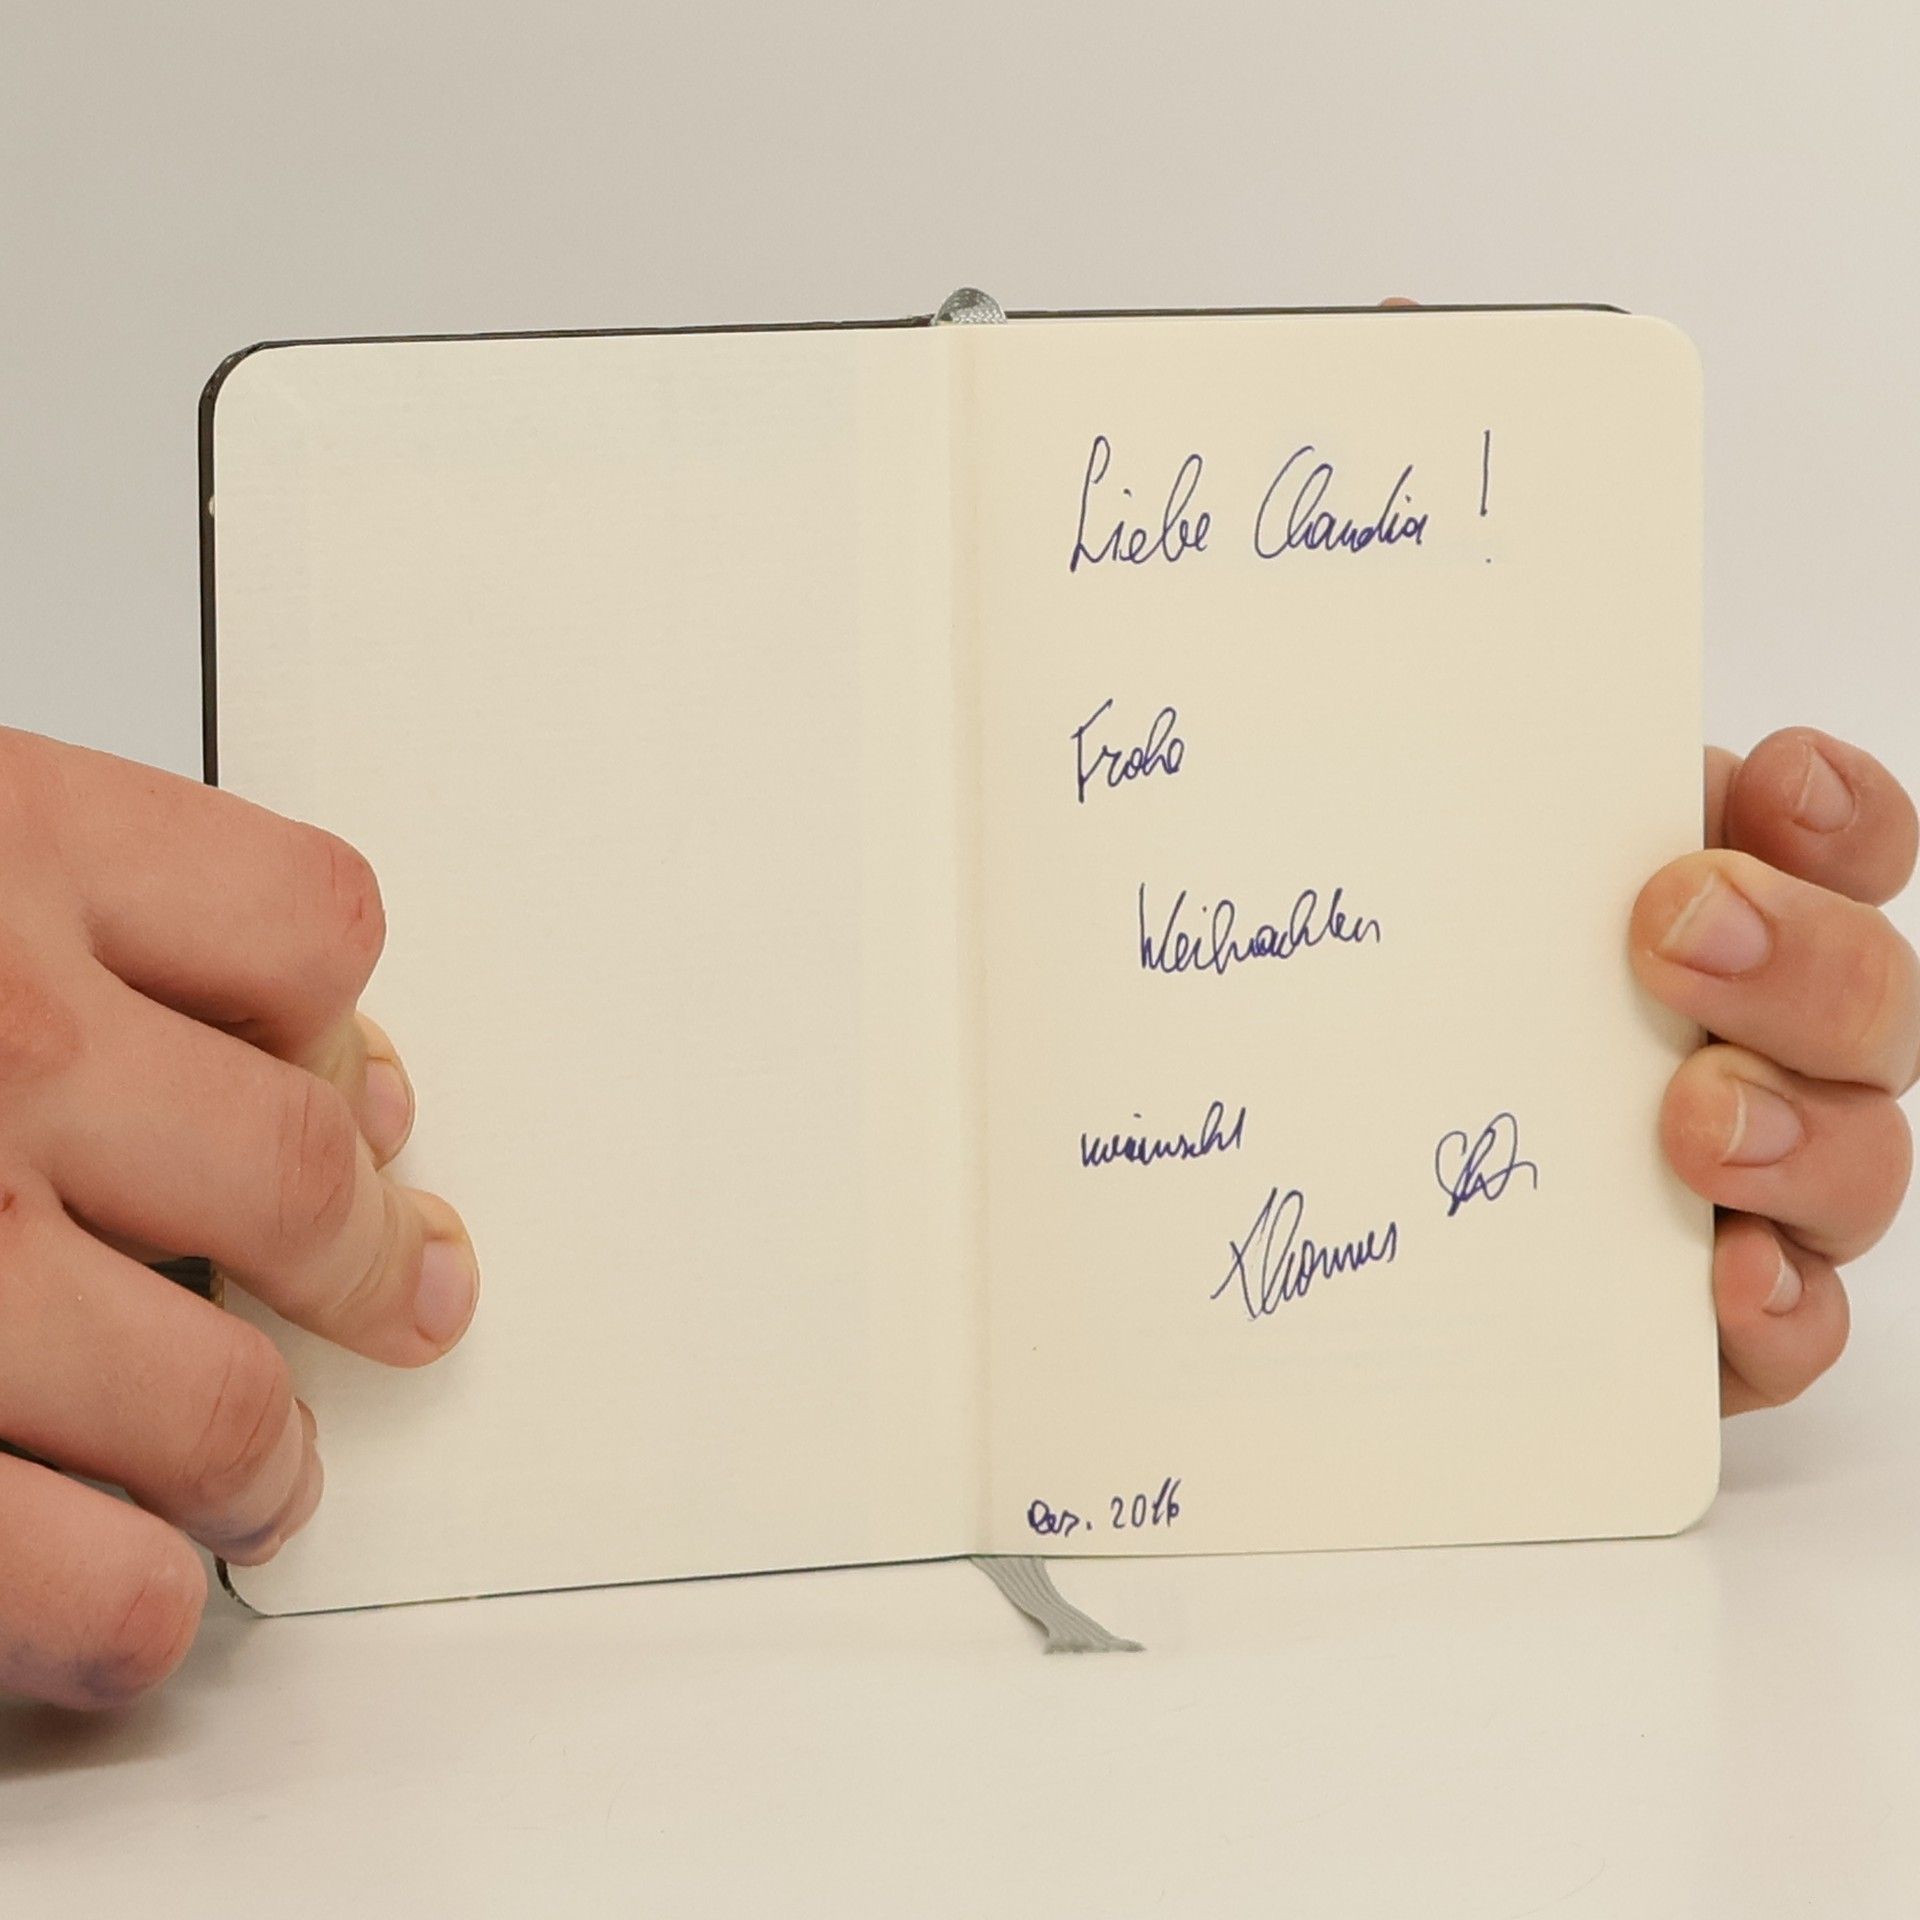 Liebe Claudia !
Frohe
Weihnachten
wünscht
Thomas
Dez. 2016